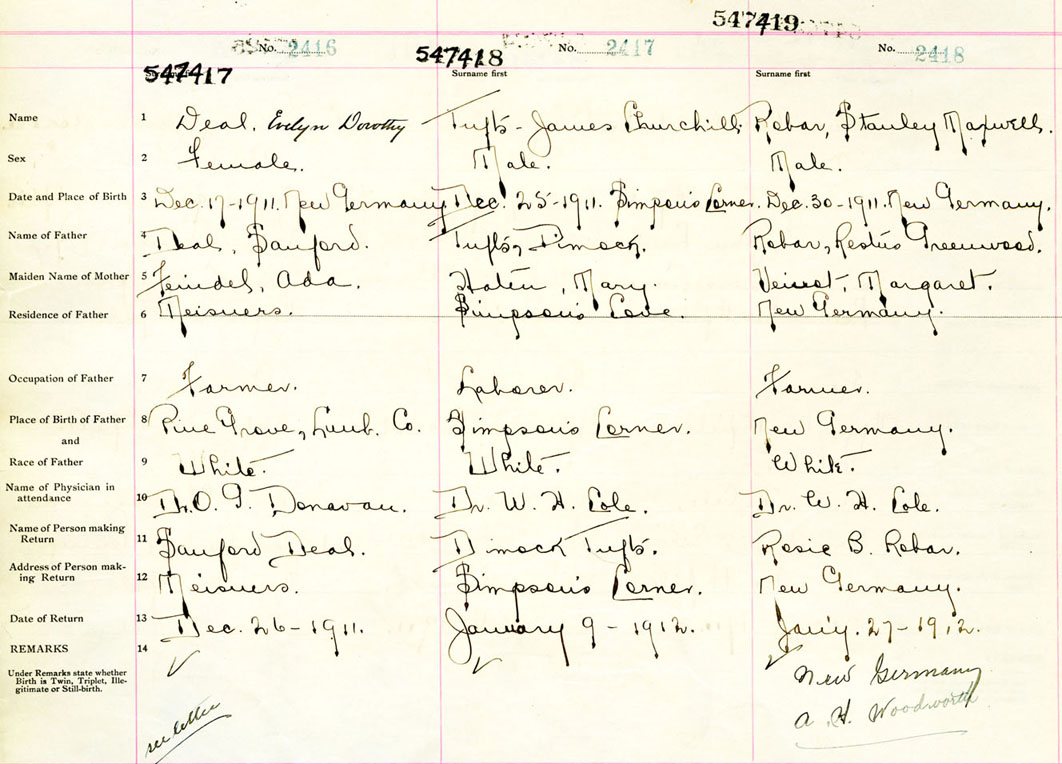 547419
No. 2416 547418 No. 2417 No. 2418
547417 Surname first Surname first
Name 1 Deal, Evelyn Dorothy Tufts - James Churchill Robar, Stanley Maxwell.
Sex 2 Female. Male. Male.
Date and Place of Birth 3 Dec. 17-1911. New Germany. Dec. 25-1911. Simpson's Corner. Dec. 30-1911. New Germany.
Name of Father 4 Deal, Sanford. Tufts, Dimock. Robar, Restus Greenwood.
Maiden Name of Mother 5 Feindel, Ada. Mary. Veinot, Margaret.
Residence of Father 6 Meisners. Simpson's New Germany.
Occupation of Father 7 Farmer. Laborer. Farmer.
Place of Birth of Father 8 Pine Grove, Lunb. Co. Simpson's Corner. New Germany.
and
Race of Father 9 White. White. White.
Name of Physician in
attendance 10 Dr. O. G. Donavan. Dr. W. H. Cole. Dr. W. H. Cole.
Name of Person making
Return 11 Sanford Deal. Dimock Tufts. Rosie B. Robar.
Address of Person mak-
ing Return 12 Meisners. Simpson's Corner. New Germany.
Date of Return 13 Dec. 26-1911. January 9-1912. Jan'y. 27-1912.
REMARKS 14
Under Remarks state whether
Birth is Twin, Triplet, Ille-
gitimate or Still-birth.
New Germany
A. H. Woodworth
see letter